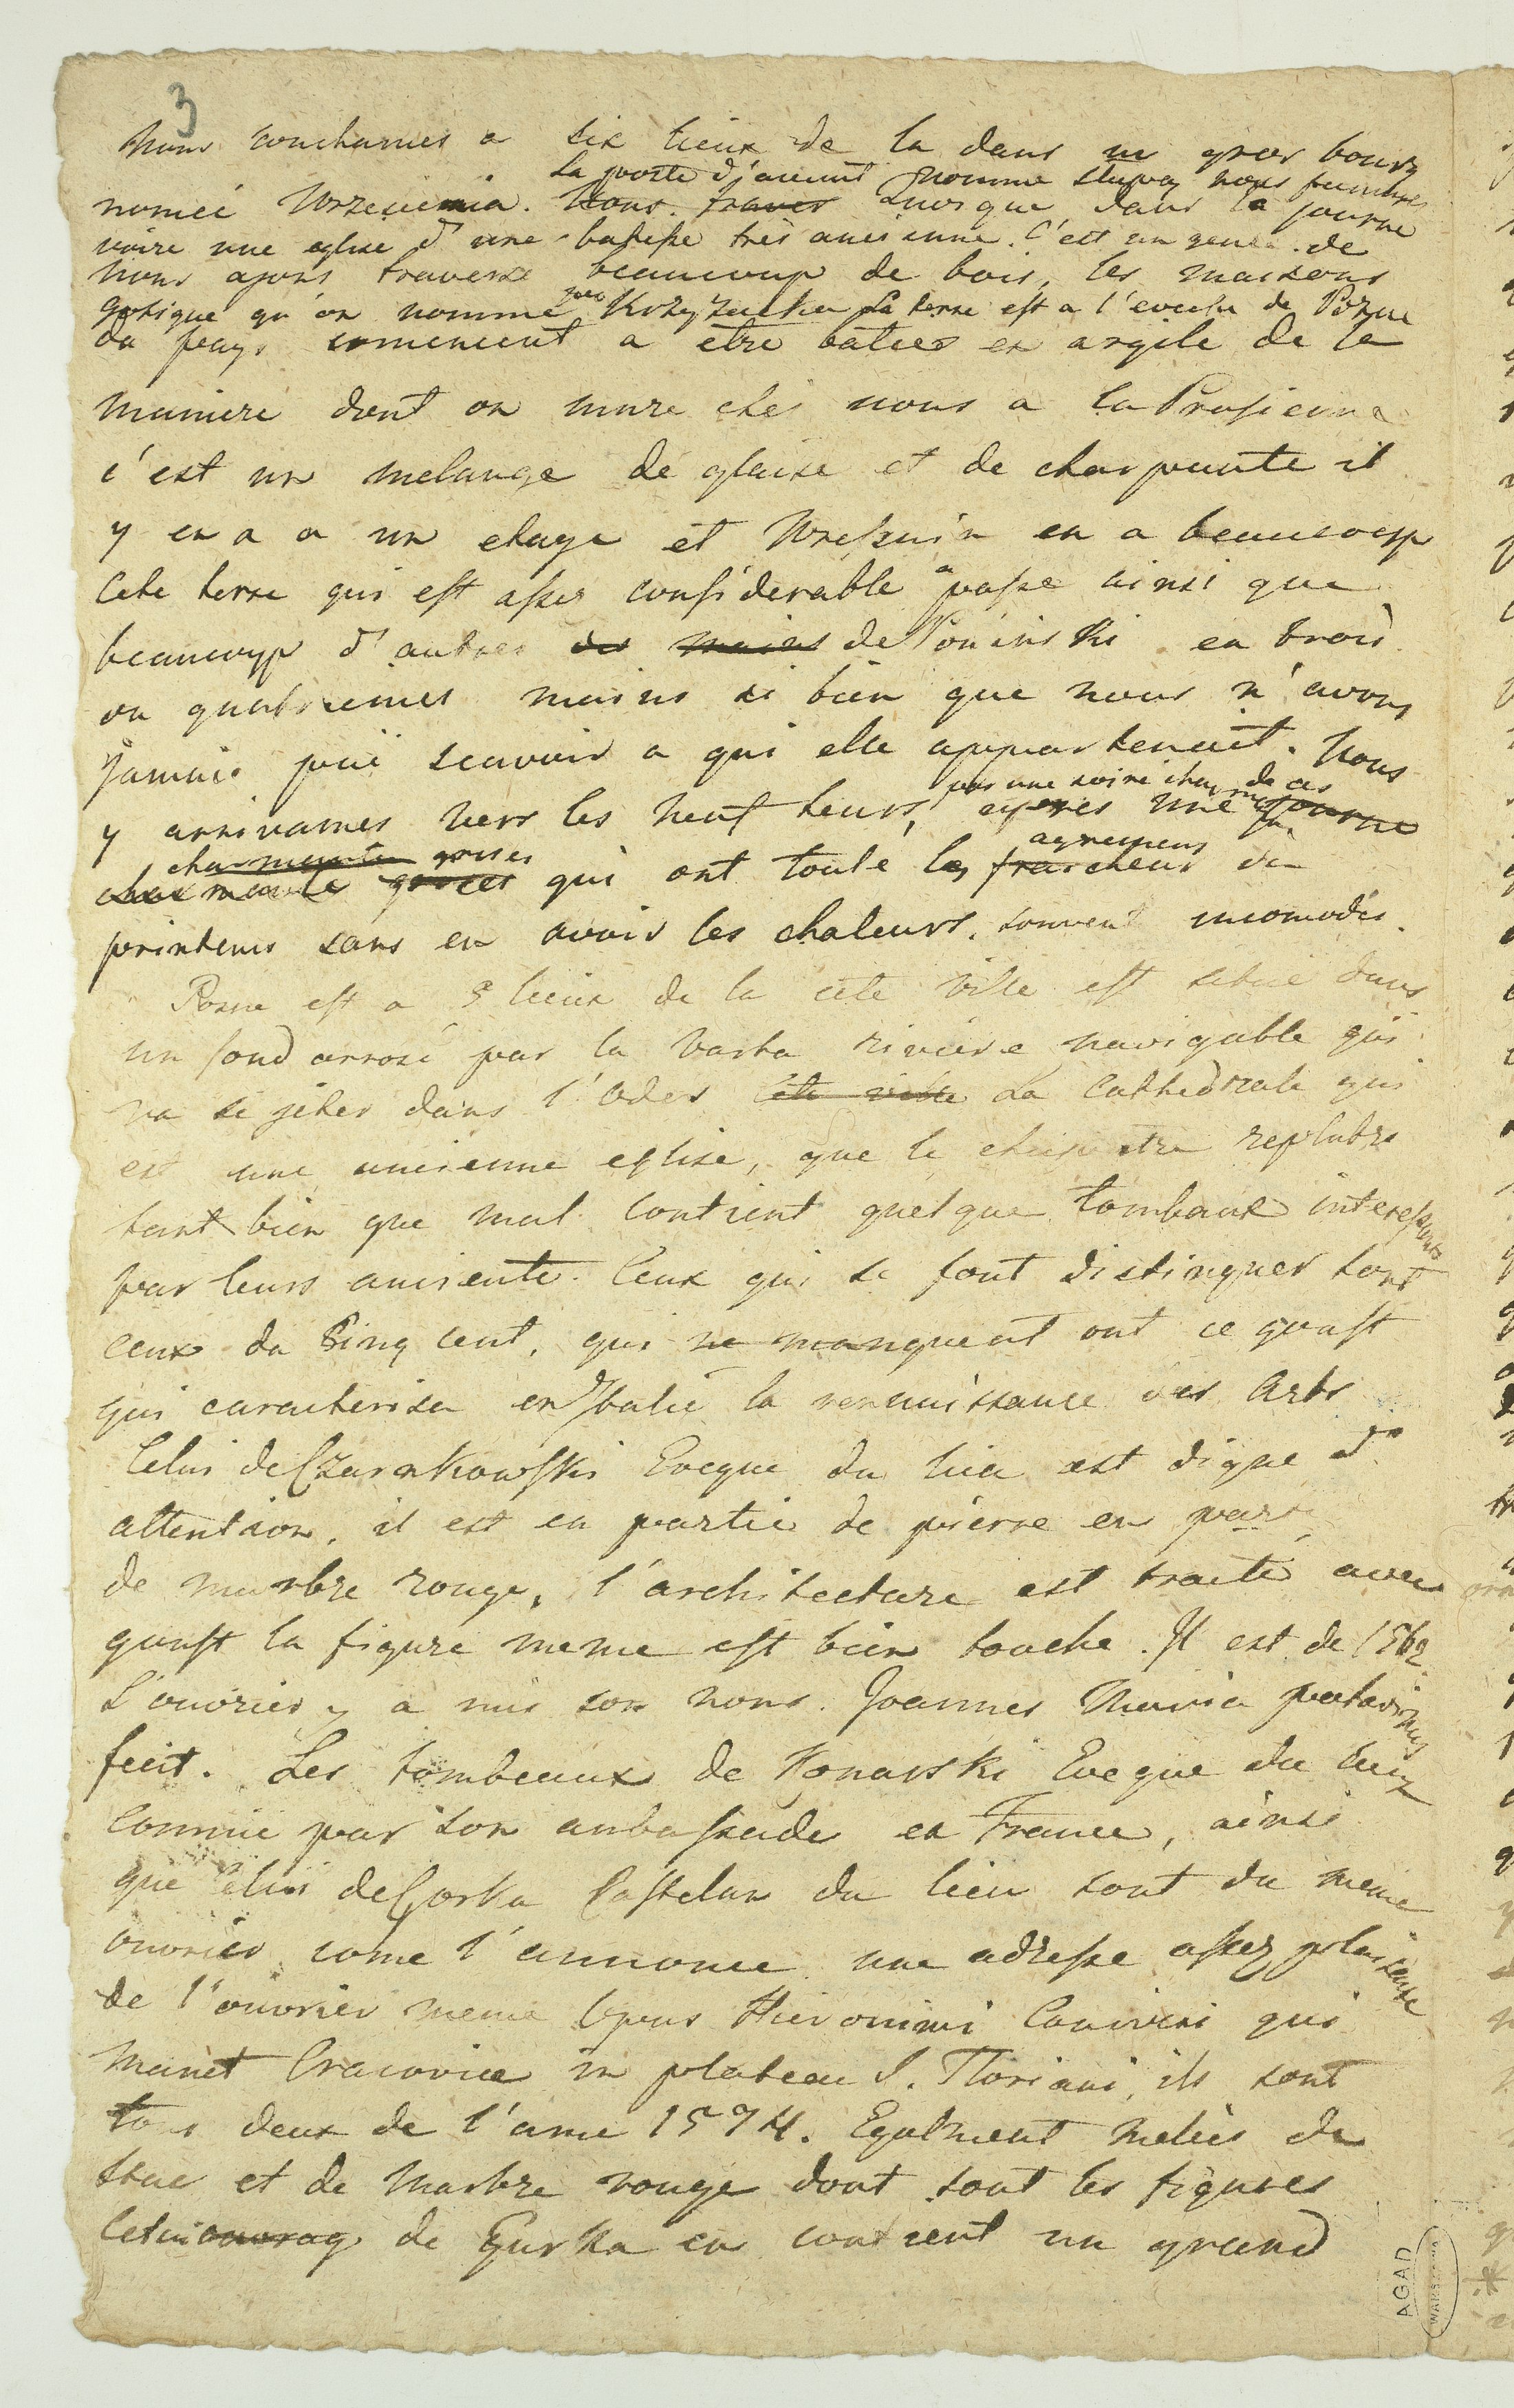 3
Nous couchames a six lieux de la dans un gros bourg
La poste d'avant nommé Slupca nous fumes
nomée Wrzesienia. Nous traver Quoique dans la journe
voire une eglise d'une batisse très ancienne. C'est un genre de
nous ayons traversé beaucoup de bois, les maisons
gotique qu'on nomme Krzyzacka La terre est a l'eveche de Pozne
du pays comencent a etre baties en argile de la
maniere dont on mure chés nous a la Prusienne
c'est un melange de glaise et de charpente il
y en a a un etage et Wresznia en a beaucoup
Cete terre qui est assez considerable a passe ainsi que
beaucoup d'autres des mains de Poninski en trois
ou quatriemes mains si bien que nous n'avons
jamais puë scavoir a qui elle appartenait. Nous
par une soire charmante de ces
y arrivames vers les neuf heurs, apres une journe
charmante agremens
charmante qui ont toute les fraicheur du
printems sans en avoir les chaleurs souvent incomodes.
Posne est a 5 lieux de la cete ville est située dans
un fond arrosé par la Varta riviere navigable qui
va se jeter dans l'Oder Cete ville La Cathedrale qui
est une ancienne eglise, que le chapitre replatre
tant bien que mal contient quelque tombeaux interessants
par leurs anciente. Ceux qui se font distinguer sont
ceux du Cinq cent, qui ne manquent ont ce goust
qui caracterisa en Italie la rennaissance des Arts
Celui de Czarnkowski Eveque du lieu est digne d'
attention, il est en partie de pierre en parti
de marbre rouge, l'architecture est traité avec
goust la figure meme est bien touche. Il est de 1562.
L'ouvrier y a mis son nom. Joannes Maria patavinus
fecit. Les tombeaux de Konarski Eveque du lieu
connue par son ambassade en France, ainsi
que celui de Gorka Castelan du lieu sont du meme
ouvrier come l'annonce une adresse assez plaisante
de l'ouvrier meme Opus Hieronimi Canavesi qui
manet Cracovice in plateau S. Floriani, ils sont
tous deux de l'anne 1574. Egalment melés de
stuc et de marbre rouge dont sont les figures
Celui ouvrag de Gurka en contient un grand
AGAD
WARSZAWA